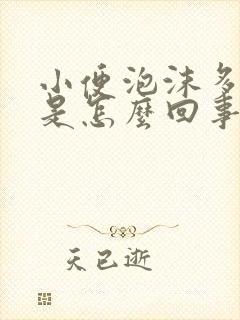 小便泡沫多
是怎麼回事
天已逝